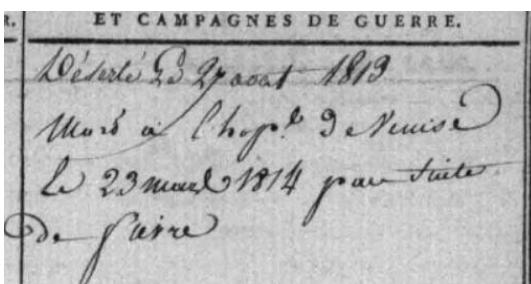 R.
ET CAMPAGNES DE GUERRE.
Déserté Le 27 aoat 1813
Mort à l'hopl. De Venise
Le 23 mars 1814 par Suite
de fievre